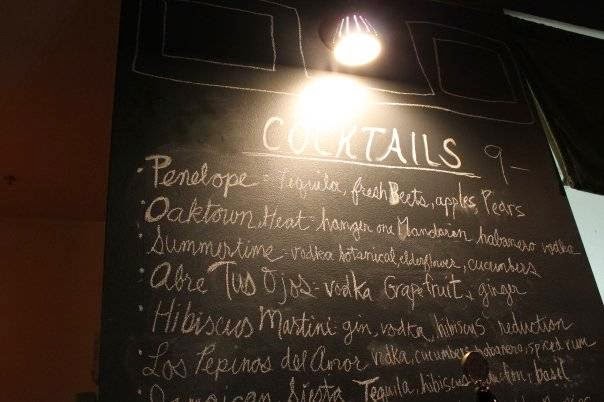 COCKTAILS 9-
· Penelope - Tequila, fresh Beets, apples, Pears
· Oaktown Heat - hanger one Mandarin habanero vodka
· Summertime - vodka botanical, elderflower, cucumbers
· Abre Tus Ojos - vodka Grapefruit, ginger
· Hibiscus Martini - gin, vodka, hibiscus reduction
· Los Pepinos del Amor vodka, cucumber, habanero, spiced rum
· Jamaican Siesta Tequila, hibiscus reduction, basil